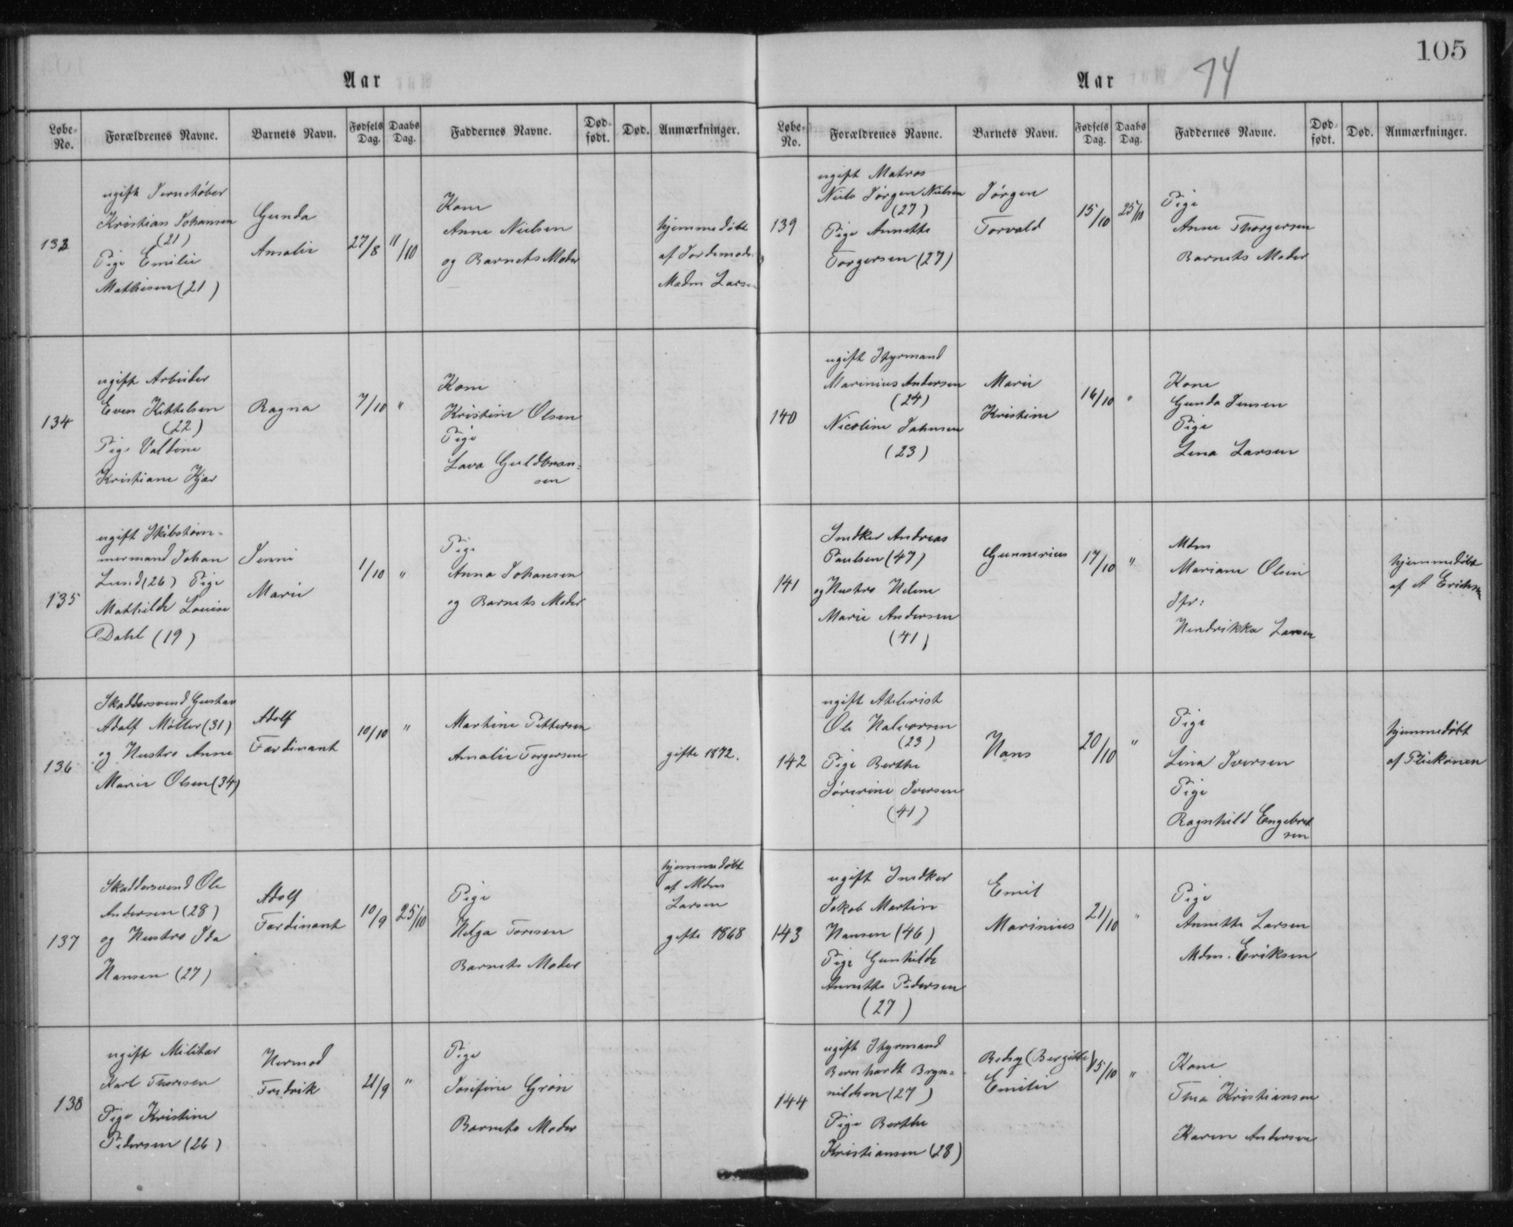 105
Aar
Løbe-No.
Forældrenes Navne.
Barnets Navn.
Fødsels Dag.
Daabs Dag.
Faddernes Navne.
Død-født.
Død.
Anmærkninger.
133
ugift Jernstøber
Kristian Johansen
(21)
Pige Emilie
Mathisen (21)
Gunda
Amalie
27/8
11/10
Kone
Anne Nielsen
og Barnets Moder
hjemmedøbt
af Jordemoder
Madm Larsen
134
ugift Arbeider
Even Kittelsen
(22)
Pige Valborg
Kristiane Kjær
Ragna
7/10
"
Kone
Kristine Olsen
Pige
Lava Guldbran-
sen
135
ugift Skibstøm-
mermand Johan
Lund (26) Pige
Mathilde Louise
Dahl (19)
Jenni
Marie
1/10
"
Pige
Anna Johansen
og Barnets Moder
136
Skræddersvend Gustav
Adolf Møller (31)
og Hustro Anne
Marie Olsen (34)
Adolf
Fardinant
10/10
"
Martine Pettersen
Amalie Torgersen
gifte 1872.
137
Skræddersvend Ole
Andersen (28)
og Hustro Ida
Hansen (27)
Adolf
Fardinant
10/9
25/10
Pige
Helga Toresen
Barnets Moder
hjemmedøbt
af Mdm
Larsen
gifte 1868
138
ugift Militær
Karl Thoresen
Pige Kristine
Pedersen (26)
Hermod
Fredrik
21/9
"
Pige
Josefine Grøn
Barnets Moder
Aar 74
Løbe-No.
Forældrenes Navne.
Barnets Navn.
Fødsels Dag.
Daabs Dag.
Faddernes Navne.
Død-født.
Død.
Anmærkninger.
139
ugift Matros
Niels Jørgen Nielsen
(27)
Pige Annette
Torgersen (27)
Jørgen
Torvald
15/10
25/10
Pige
Anne Thorgersen
Barnets Moder
140
ugift Styrmand
Marinius Andersen
(24)
Nicoline Jahnsen
(23)
Marie
Kristine
16/10
"
Kone
Gunda Jensen
Pige
Lina Larsen
141
Snedker Andreas
Paulsen (47)
og Hustro Helene
Marie Andersen
(41)
Gunnerius
17/10
"
Mdm
Mariane Olsen
Jfr:
Hendrikka Larsen
hjemmedøbt
af A Eriksen
142
ugift
Ole Halvorsen
(23)
Pige Berthe
Sørerine Iversen
(41)
Hans
20/10
"
Pige
Lina Iversen
Pige
Ragnhild Engebret
sen
hjemmedøbt
af Pleiekonen
143
ugift Snedker
Jakob Martin
Hansen (46)
Pige Gunhilde
Annette Pedersen
(27)
Emil
Marinius
21/10
"
Pige
Annette Larsen
Mdm. Eriksen
144
ugift Styrmand
Bernhardt Bryn-
nildsen (27)
Pige Berthe
Kristiansen (28)
Betsy (Bergitte)
Emilie
15/10
"
Kone
Tina Kristiansen
Karen Andersen